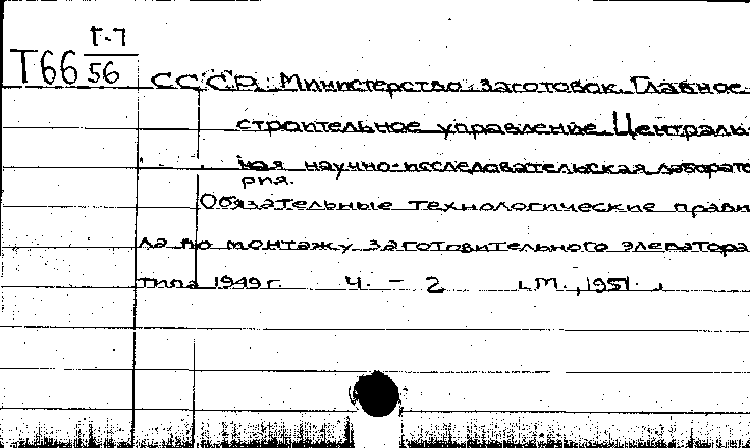 Г-7
Т66 56
СССР. Министерство заготовок. Главное
строительное управление. Централь
ная научно-исследовательская лаборато
рия.
Обязательные технологические прави
ла по монтажу заготовительного элеватора
типа 1949 г. Ч. - 2 М., 1951.